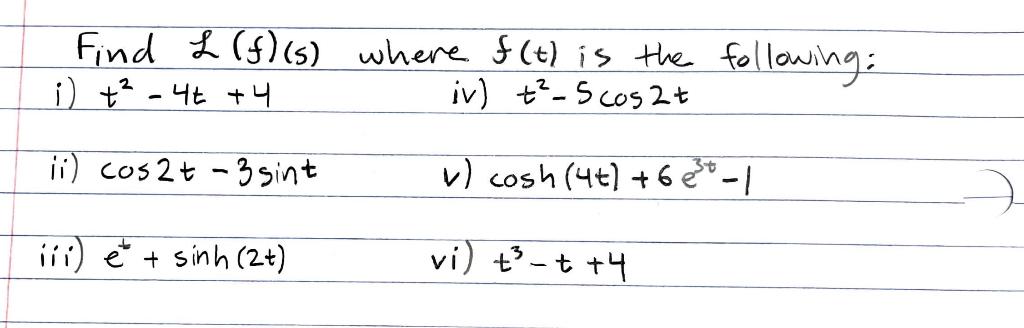 Find ℒ(f)(s) where f(t) is the following:
i) t² - 4t + 4 iv) t² - 5cos2t
ii) cos2t - 3sint v) cosh(4t) + 6e³ᵗ - 1
iii) eᵗ + sinh(2t) vi) t³ - t + 4